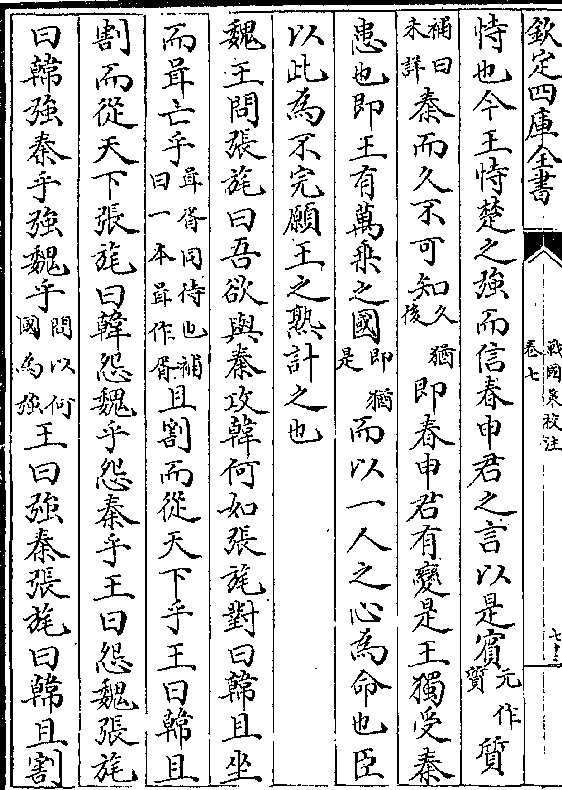 欽定四庫全書
戰國策校注
卷七
恃也今王恃楚之強而信春申君之言以是賓元作質質
補曰未詳秦而久不可知久猶後即春申君有變是王獨受秦
患也即王有萬乘之國即猶是而以一人之心為命也臣
以此為不完願王之熟計之也
魏王問張旄曰吾欲與秦攻韓何如張旄對曰韓且坐
而咠亡乎咠胥同待也補曰一本咠作胥且割而從天下乎王曰韓且
割而從天下張旄曰韓怨魏乎怨秦乎王曰怨魏張旄
曰韓強秦乎強魏乎問以何國為強王曰強秦張旄曰韓且割